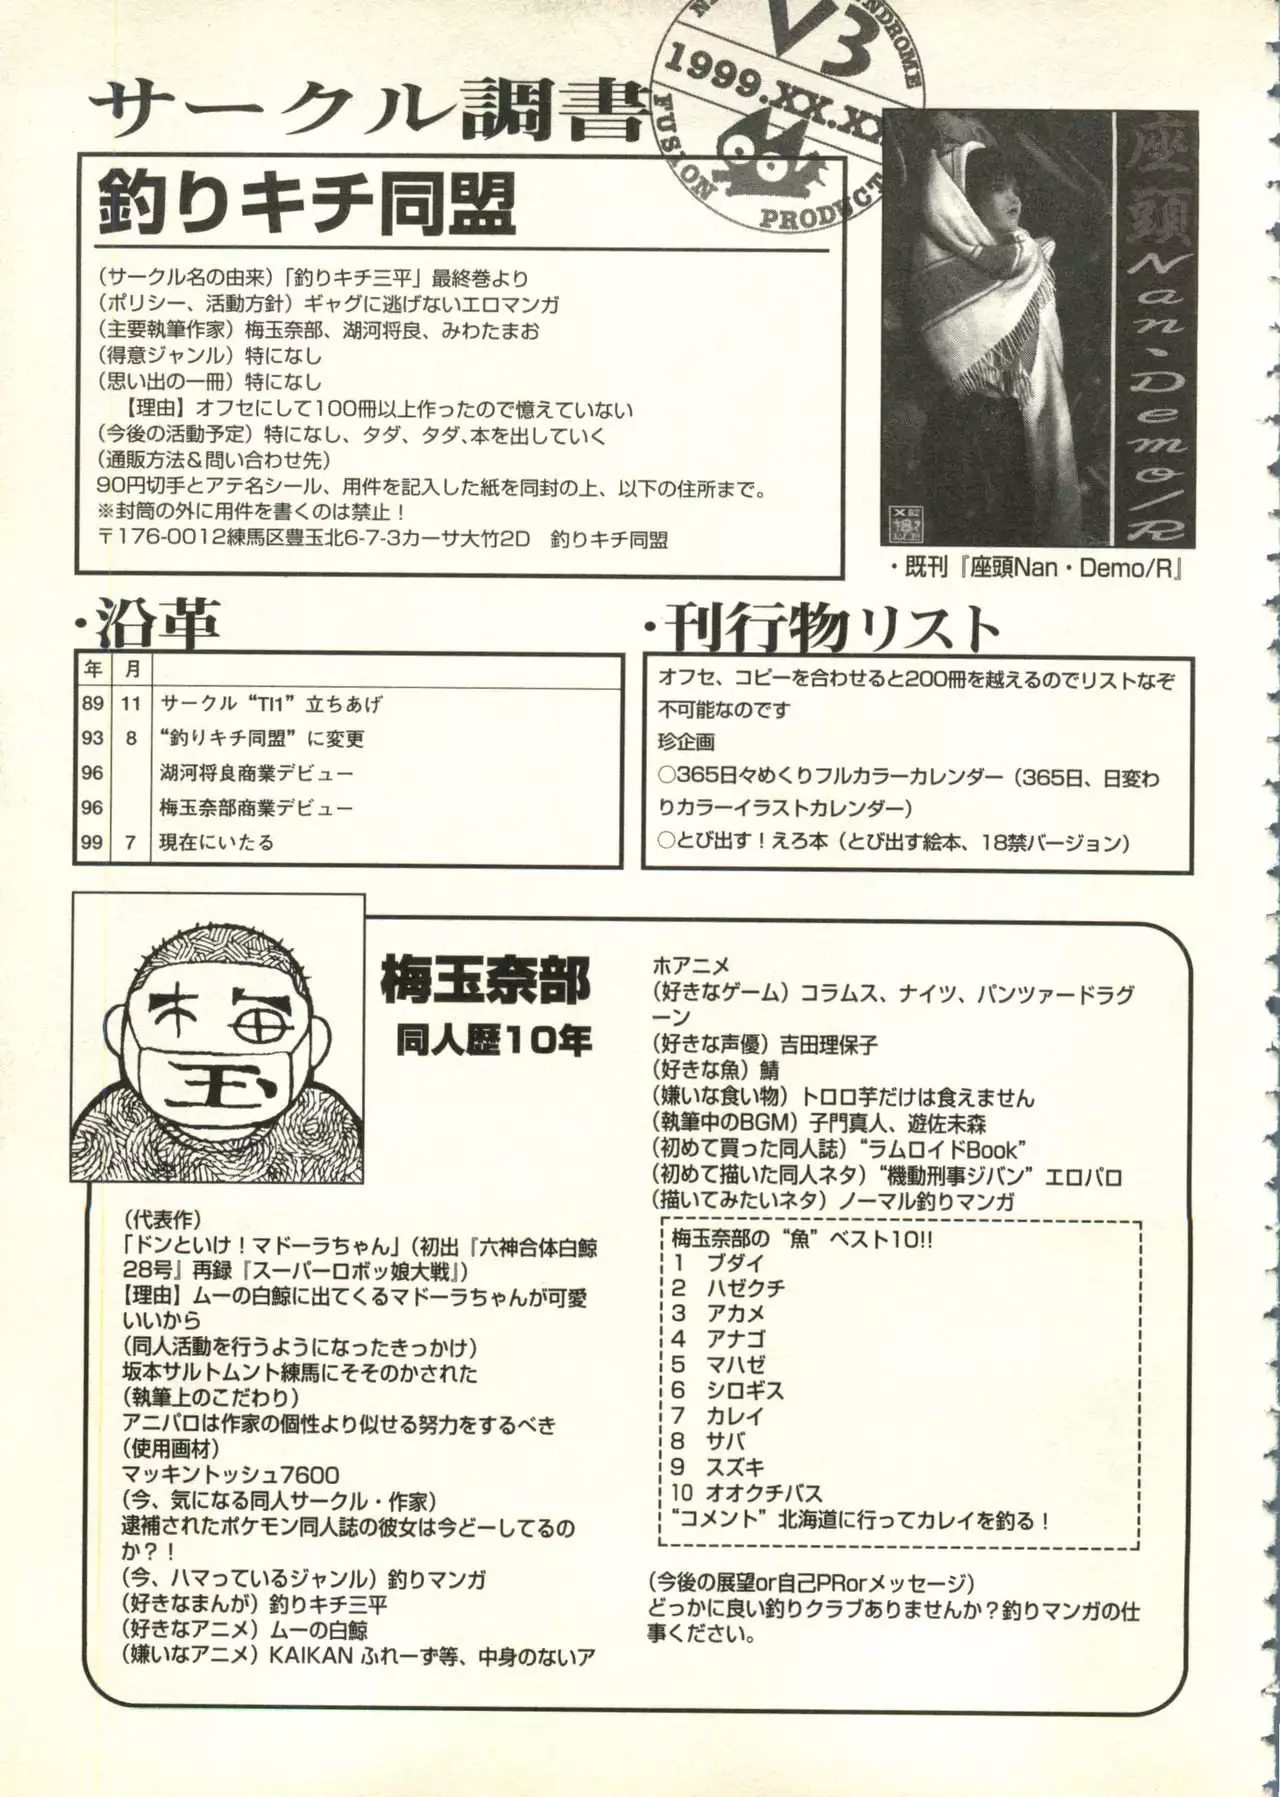 サークル調書
V3
NDROME
1999.XX.XX
FUSION PRODUCT
釣りキチ同盟
（サークル名の由来）「釣りキチ三平」最終巻より
（ポリシー、活動方針）ギャグに逃げないエロマンガ
（主要執筆作家）梅玉奈部、湖河将良、みわたまお
（得意ジャンル）特になし
（思い出の一冊）特になし
【理由】オフセにして100冊以上作ったので憶えていない
（今後の活動予定）特になし、タダ、タダ､本を出していく
（通販方法＆問い合わせ先）
90円切手とアテ名シール、用件を記入した紙を同封の上、以下の住所まで。
※封筒の外に用件を書くのは禁止！
〒176-0012練馬区豊玉北6-7-3カーサ大竹2D　釣りキチ同盟
座頭Nan・Demo/R
・既刊『座頭Nan・Demo/R』
・沿革
年 月
89 11 サークル“TI1”立ちあげ
93 8 “釣りキチ同盟”に変更
96 湖河将良商業デビュー
96 梅玉奈部商業デビュー
99 7 現在にいたる
・刊行物リスト
オフセ、コピーを合わせると200冊を越えるのでリストなぞ
不可能なのです
珍企画
○365日々めくりフルカラーカレンダー（365日、日変わ
りカラーイラストカレンダー）
○とび出す！えろ本（とび出す絵本、18禁バージョン）
梅
玉
梅玉奈部
同人歴10年
（代表作）
「ドンといけ！マドーラちゃん」（初出『六神合体白鯨
28号』再録『スーパーロボッ娘大戦』）
【理由】ムーの白鯨に出てくるマドーラちゃんが可愛
いいから
（同人活動を行うようになったきっかけ）
坂本サルトムント練馬にそそのかされた
（執筆上のこだわり）
アニパロは作家の個性より似せる努力をするべき
（使用画材）
マッキントッシュ7600
（今、気になる同人サークル・作家）
逮補されたポケモン同人誌の彼女は今どーしてるの
か？！
（今、ハマっているジャンル）釣りマンガ
（好きなまんが）釣りキチ三平
（好きなアニメ）ムーの白鯨
（嫌いなアニメ）KAIKAN ふれーず等、中身のないア
ホアニメ
（好きなゲーム）コラムス、ナイツ、パンツァードラグ
ーン
（好きな声優）吉田理保子
（好きな魚）鯖
（嫌いな食い物）トロロ芋だけは食えません
（執筆中のBGM）子門真人、遊佐未森
（初めて買った同人誌）“ラムロイドBook”
（初めて描いた同人ネタ）“機動刑事ジバン”エロパロ
（描いてみたいネタ）ノーマル釣りマンガ
梅玉奈部の“魚”ベスト10!!
1　ブダイ
2　ハゼクチ
3　アカメ
4　アナゴ
5　マハゼ
6　シロギス
7　カレイ
8　サバ
9　スズキ
10 オオクチバス
“コメント”北海道に行ってカレイを釣る！
（今後の展望or自己PRorメッセージ）
どっかに良い釣りクラブありませんか？釣りマンガの仕
事ください。